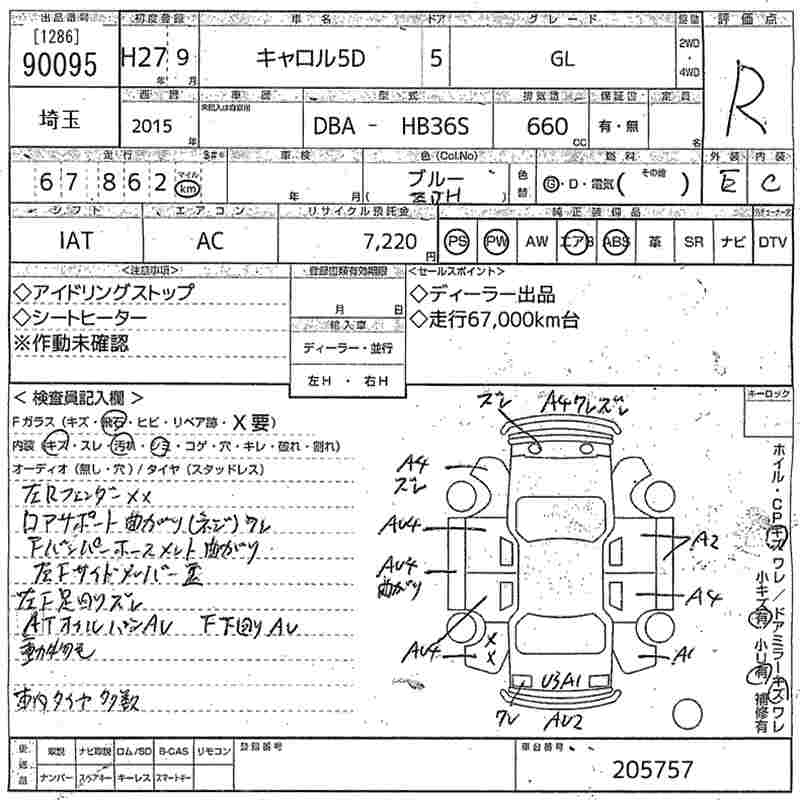 出品番号 初度登録 車名 ドア グレード 駆動 評価点
[1286]
90095 H27 9 キャロル5D 5 GL 2WD・4WD R
年 月
埼玉 型式 排気量 定員
2015年 DBA - HB36S 660 CC 有・無 名
走行 車検 色(Col.No) 燃料 外装 内装
67862 マイル km 年 月 ブルー 色替 G・D・電気( その他 ) E C
シフト エアコン リサイクル預託金 純正装備品
IAT AC 7,220 円 PS PW AW エアB ABS 革 SR ナビ DTV
<注意事項> 登録書類有効期限 <セールスポイント>
◇アイドリングストップ 月 日 ◇ディーラー出品
◇シートヒーター 輸入車 ◇走行67,000km台
※作動未確認 ディーラー・並行
左H・右H
<検査員記入欄> キーロック
Fガラス(キズ・飛石・ヒビ・リペア跡・X要)
内装(キズ・スレ・汚れ・シミ・コゲ・穴・キレ・破れ・割れ)
オーディオ(無し・穴)/タイヤ(スタッドレス)
左Rフェンダー××
ロアサポート曲がり(ネジ)ワレ
Fバンパーホースメント曲がり
左Fサイドメンバー
左F足回りズレ
ATオイルパンAU F下回りAU
動物毛
車内タイヤ多数
ズレ A4ワレズレ
A4
ズレ
AU4
AU4
曲がり
AU4
××
A2
A4
A1
U3A1
ワレ AU2
ホイル・CPキズワレ/ドアミラーキズワレ
小キズ有 小U有 補修有
後送品 取説 ナビ取説 ロム/SD B-CAS リモコン 登録番号 車台番号
ナンバー スペアキー キーレス スマートキー 205757